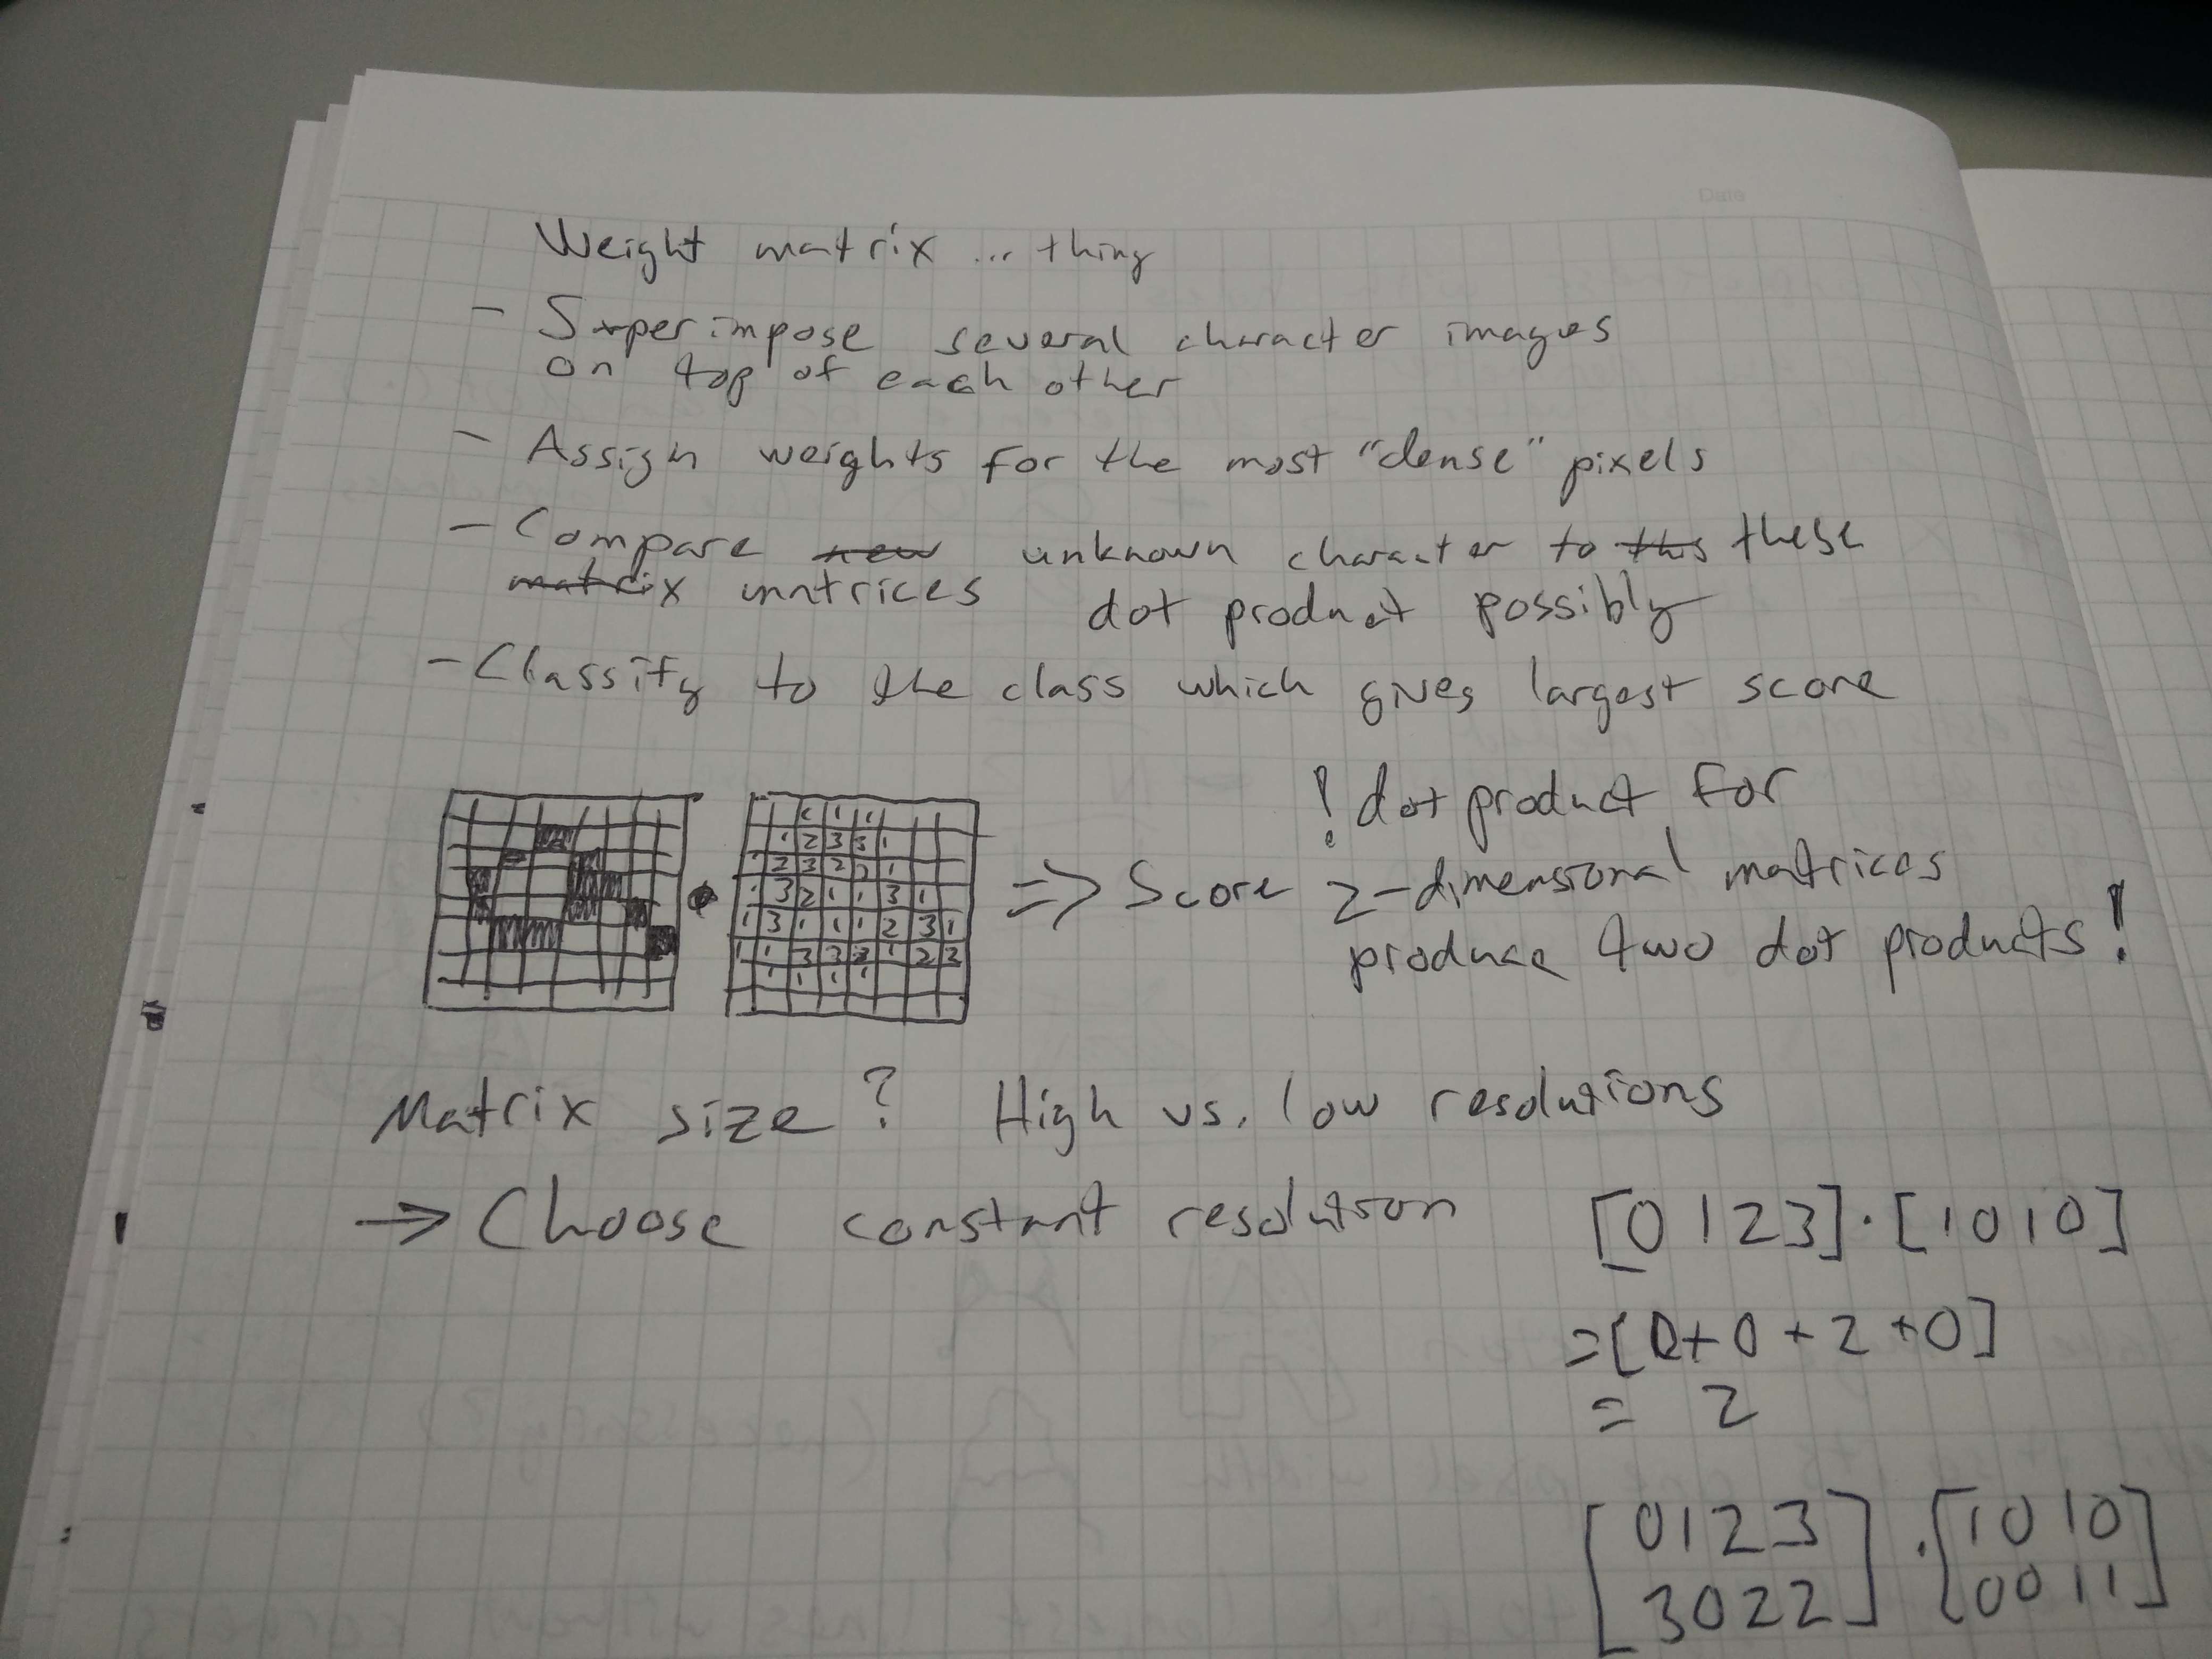 Date
Weight matrix ... thing
- Superimpose several character images
on top of each other
- Assign weights for the most "dense" pixels
- Compare new unknown character to this these
matrix matrices dot product possibly
- Classify to the class which gives largest score
1 1
1 2 3 3 1
1 2 3 2 1
1 3 2 1 1 3 1
1 3 1 1 1 2 3 1
1 1 3 3 3 1 2 3
1 1 1 1
• => Score
! dot product for
2-dimensional matrices
produce two dot products!
Matrix size? High vs. low resolutions
-> Choose constant resolution
[0 1 2 3] · [1 0 1 0]
= [0 + 0 + 2 + 0]
= 2
[0 1 2 3 · [1 0 1 0
3 0 2 2] 0 0 1 1]